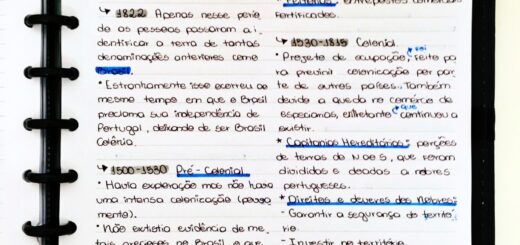 ↳ 1822 Apenas nesse perío
do as pessoas passaram a i
dentificar a terra de tantas
denominações anteriores como
Brasil.
• Estranhamente isso ocorreu ao
mesmo tempo em que o Brasil
proclama sua independência de
Portugal, deixando de ser Brasil
Colônia.
↳ 1500-1530 Pré-Colonial
• Havia exploração mas não houve
uma intensa colonização (povoa
mento).
• Não existia evidência de me
tais preciosos no Brasil e que
entrepostos comerciais
Fortificados.
↳ 1530-1815 Colonial
• Projeto de ocupação, foi feito pa
ra previnir colonização por par
te de outros países. Também
devido a queda no comércio de
especiarias, entretanto que continuou a
existir.
* Capitanias Hereditárias: porções
de terras de N a S, que foram
divididas e doadas a nobres
portugueses.
* Direitos e deveres dos Nobres:
- Garantir a segurança do territó
rio.
- Investir no território